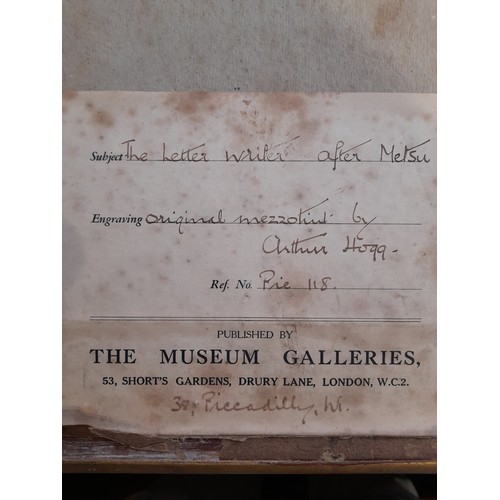 Subject The Letter Writer after Metsu
Engraving original mezzotint by
Arthur Hogg -
Ref. No. Pic 118.
PUBLISHED BY
THE MUSEUM GALLERIES,
53, SHORT'S GARDENS, DRURY LANE, LONDON, W.C.2.
Piccadilly, W.